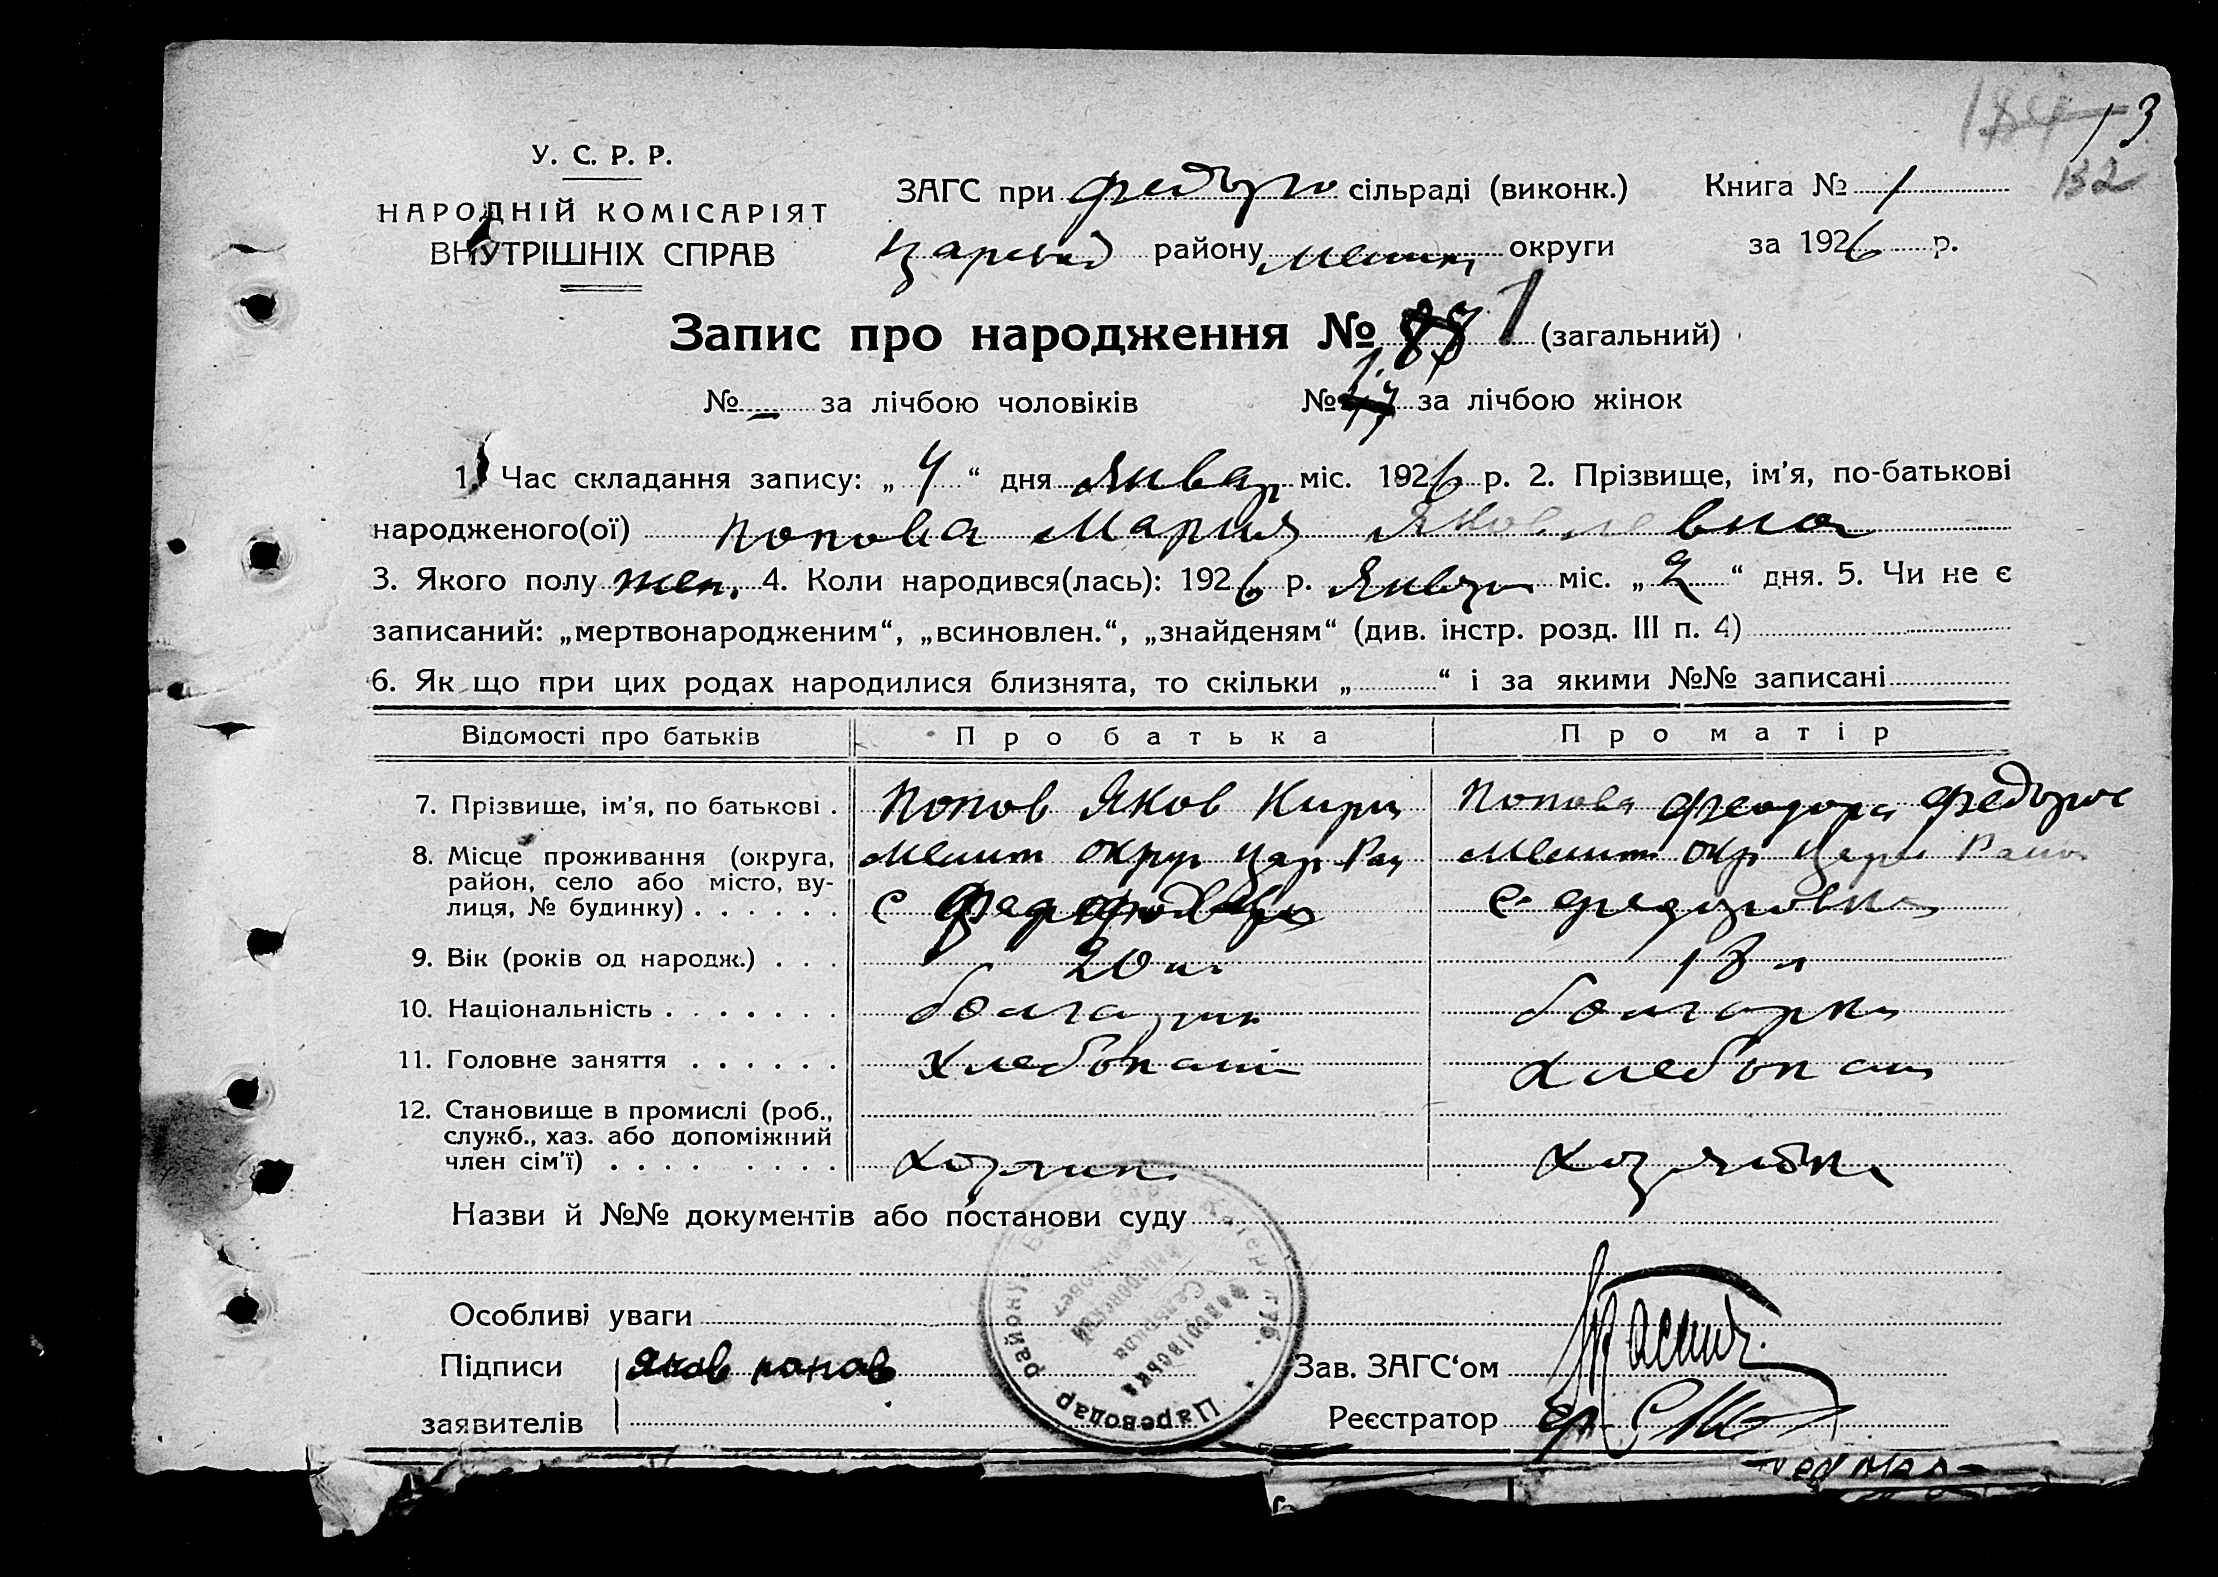 184 13
132
У. С. Р. Р.
НАРОДНІЙ КОМІСАРІЯТ
ВНУТРІШНІХ СПРАВ
ЗАГС при Федоро сільраді (виконк.) Книга № 1
Царев району Мелит округи за 1926 р.
Запис про народження № 88 1 (загальний)
№ – за лічбою чоловіків № 1. 47 за лічбою жінок
1. Час складання запису: „ 4 “ дня Январ міс. 1926 р. 2. Прізвище, ім’я, по-батькові
народженого(ої) Попова Мария Яковлевна
3. Якого полу жен. 4. Коли народився(лась): 1926 р. Января міс. „ 2 “ дня. 5. Чи не є
записаний: „мертвонародженим“, „всиновлен.“, „знайденям“ (див. інстр. розд. III п. 4)
6. Як що при цих родах народилися близнята, то скільки „ “ і за якими №№ записані
Відомості про батьків Про батька Про матір
7. Прізвище, ім’я, по батькові . Попов Яков Кирил Попова Феодора Федоров
8. Місце проживання (округа, Мелит округ Цар Ра Мелит окр Царе Район
район, село або місто, ву-
лиця, № будинку) . . . . . . с с. Федоровка
9. Вік (років од народж.) . . . 20 л. 18 л
10. Національність . . . . . . . болгарин болгарка
11. Головне заняття . . . . . . Хлебопаш Хлебопаш
12. Становище в промислі (роб.,
служб., хаз. або допоміжний
член сім’ї) . . . . . . . . Хозяин Хозяйка
Назви й №№ документів або постанови суду
Особливі уваги
Підписи Яков попов Зав. ЗАГС‘ом
заявителів Реєстратор
Цареводар району Катер. губ.
Федорівська
Сельрада